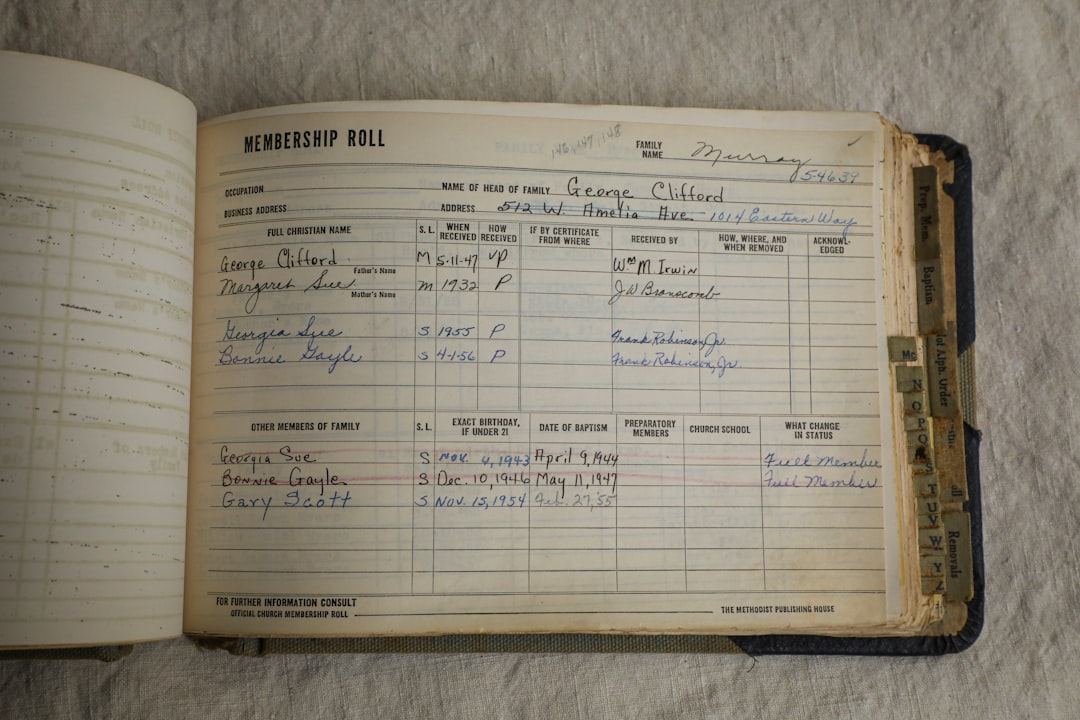 MEMBERSHIP ROLL 146 147 148 FAMILY NAME Murray
54639
OCCUPATION NAME OF HEAD OF FAMILY George Clifford
BUSINESS ADDRESS ADDRESS 512 W. Amelia Ave. - 1014 Eastern Way
FULL CHRISTIAN NAME S. L. WHEN RECEIVED HOW RECEIVED IF BY CERTIFICATE FROM WHERE RECEIVED BY HOW, WHERE, AND WHEN REMOVED ACKNOWL-EDGED
George Clifford M 5-11-47 VP Wm M Irwin
Father's Name
Margaret Sue m 1932 P JW Branscomb
Mother's Name
Georgia Sue S 1955 P Frank Robinson, Jr.
Bonnie Gayle S 4-1-56 P Frank Robinson, Jr.
OTHER MEMBERS OF FAMILY S. L. EXACT BIRTHDAY, IF UNDER 21 DATE OF BAPTISM PREPARATORY MEMBERS CHURCH SCHOOL WHAT CHANGE IN STATUS
Georgia Sue S Nov. 4, 1943 April 9, 1944 Full Member
Bonnie Gayle S Dec. 10, 1946 May 11, 1947 Full Member
Gary Scott S Nov. 15, 1954 Feb. 27, '55
FOR FURTHER INFORMATION CONSULT
OFFICIAL CHURCH MEMBERSHIP ROLL THE METHODIST PUBLISHING HOUSE
Prep. Mem.
Baptism
Alph. Order
Removals
Mc
N
O
P
Q
S
T
U
V
W
Y
Z